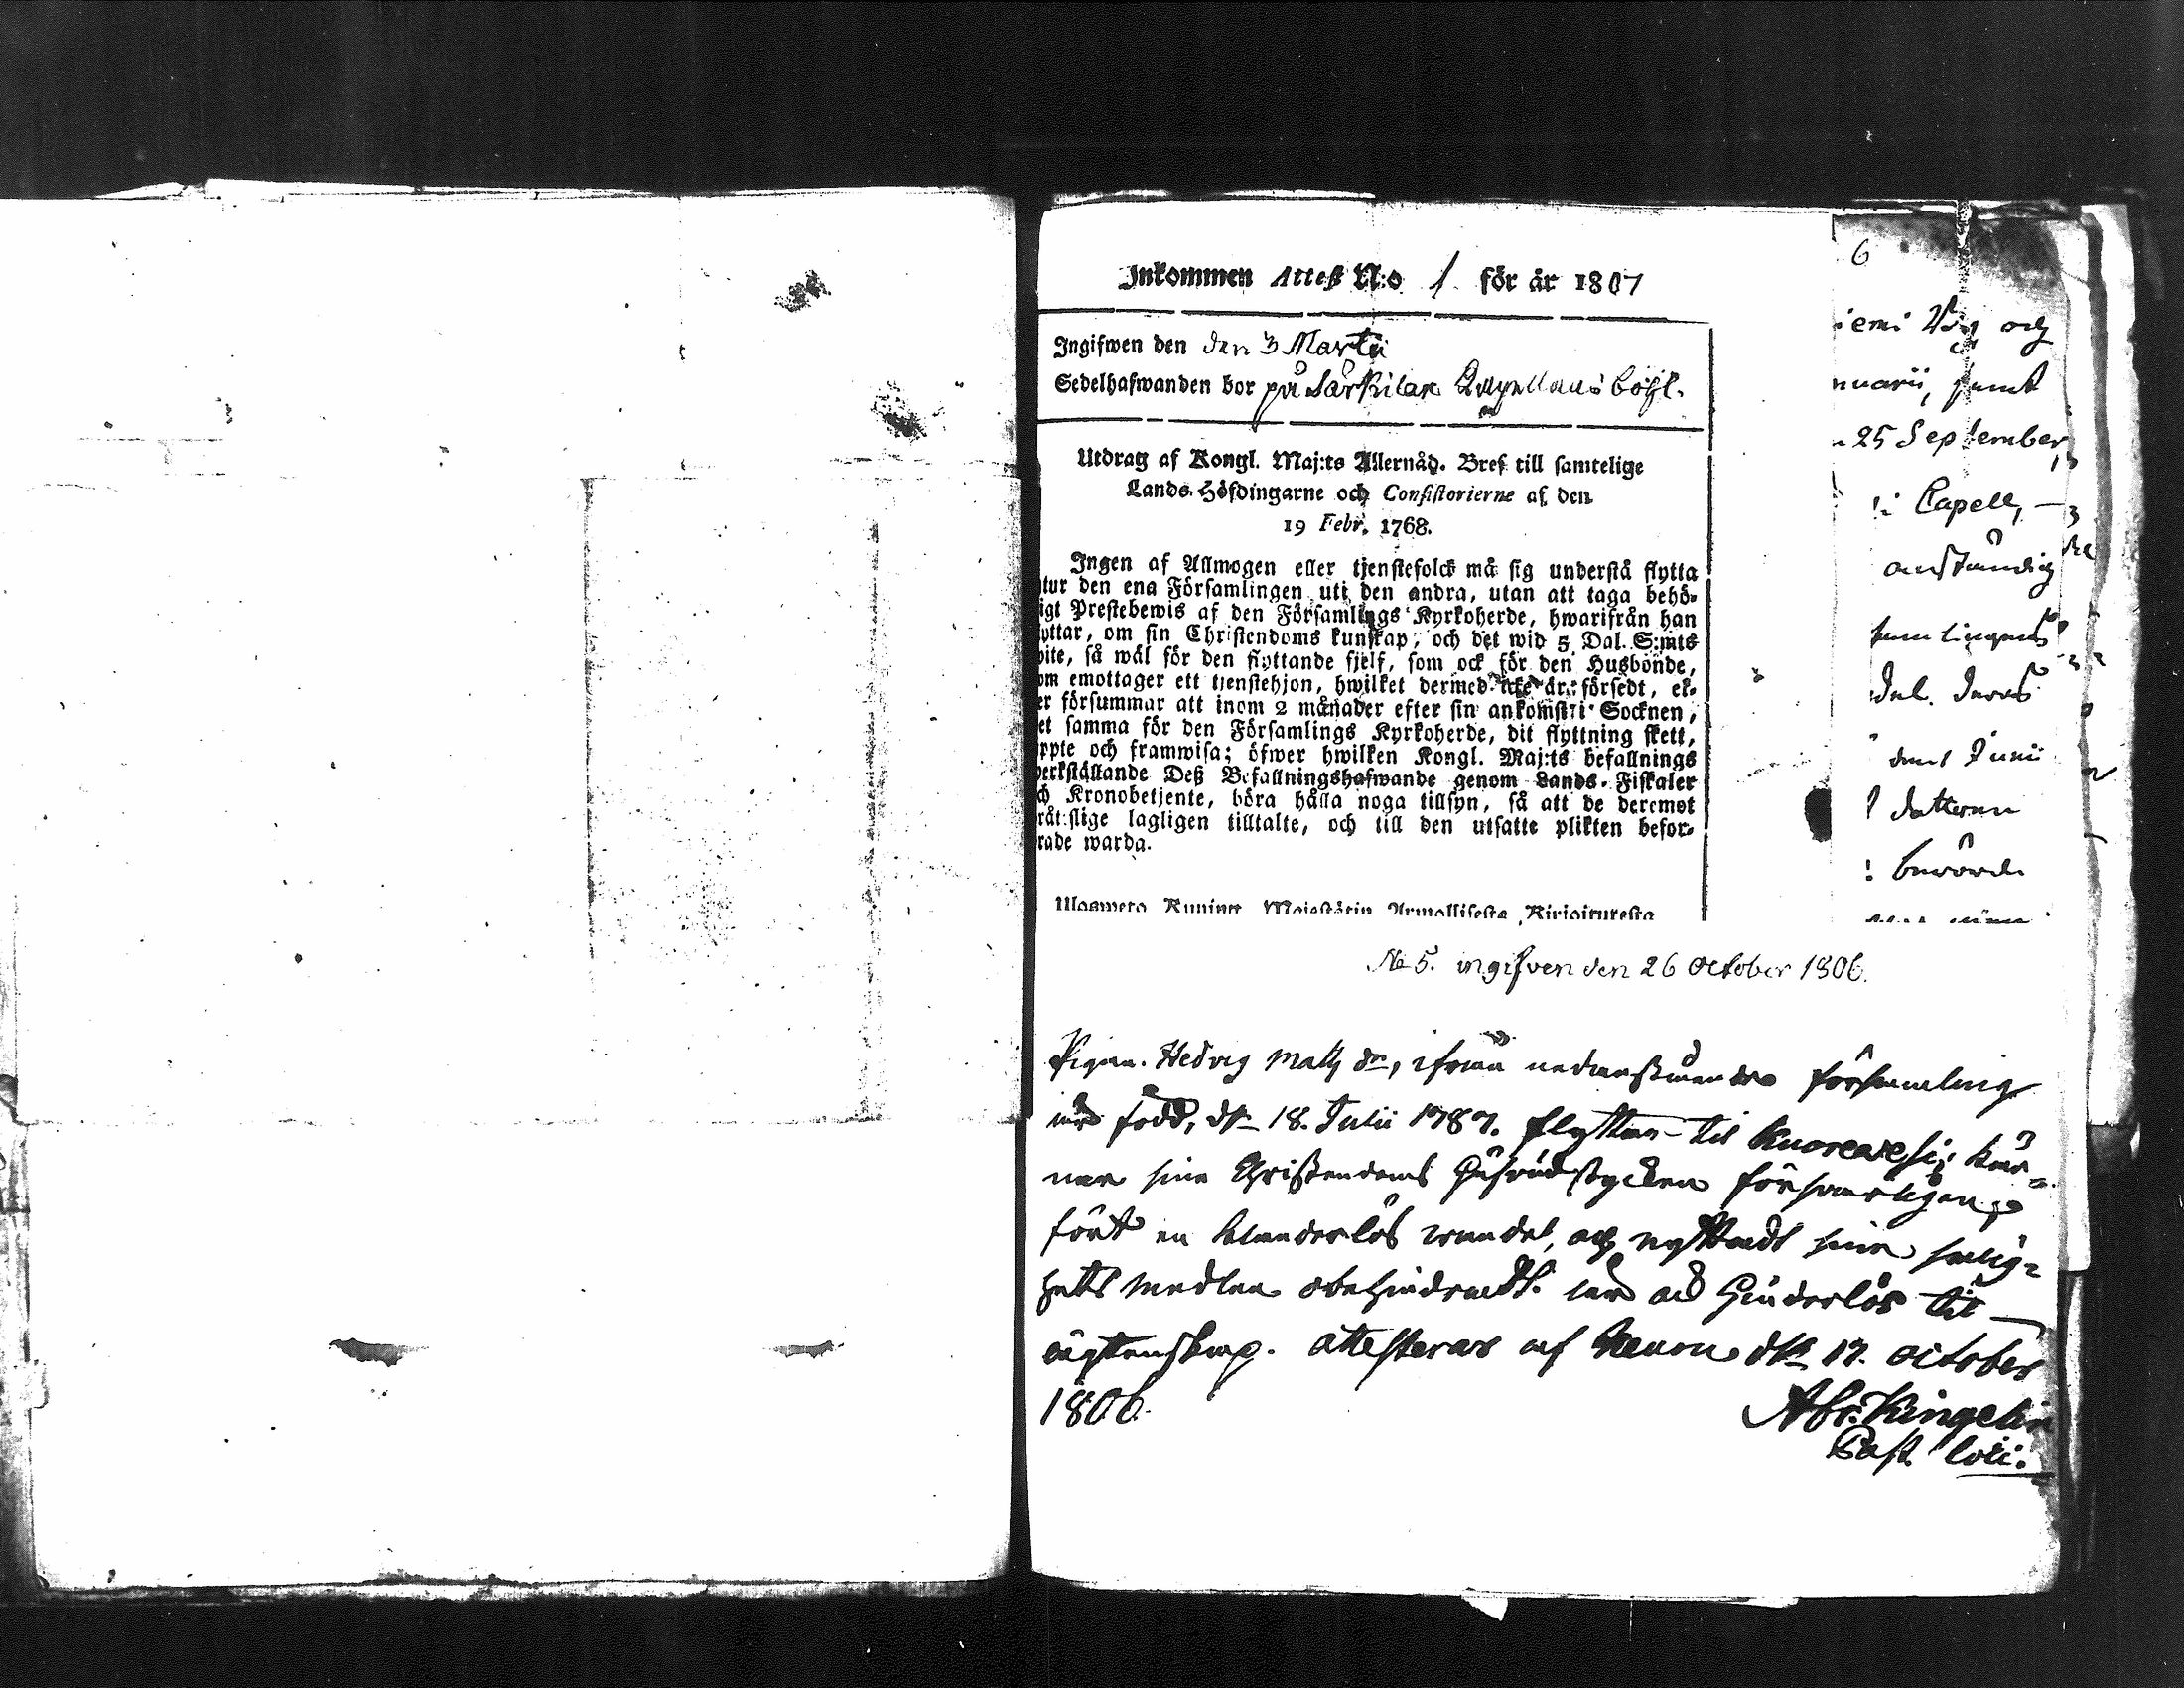 Inkommen Attest N:o 1 för år 1807
Ingifwen den den 3 Martii
Sedelhafwanden bor på Särkilax Capellans böhl.
Utdrag af Kongl. Maj:ts Allernåd. Bref till samtelige
Lands-Höfdingarne och Consistorierne af den
19 Febr. 1768.
Ingen af Allmogen eller tjenstefolck må sig understå flytta
utur den ena Församlingen uti den andra, utan att taga behö-
igt Prestebewis af den Församlings Kyrkoherde, hwarifrån han
yttar, om sin Christendoms kunskap, och det wid 5 Dal. S:mts
wite, så wäl för den flyttande sjelf, som ock för den Husbonde,
om emottager ett tjenstehjon, hwilket dermed icke är försedt, el-
er försummar att inom 2 månader efter sin ankomst i Socknen,
et samma för den Församlings Kyrkoherde, dit flyttning skett,
uppte och framwisa; öfwer hwilken Kongl. Maj:ts befallnings
werkställande Deß Befallningshafwande genom Lands-Fiskaler
ch Kronobetjente, böra hålla noga tillsyn, så att de deremot
råtslige lagligen tilltalte, och till den utsatte plikten befor-
rade warda.
Ulogweto Kuning. Majestätin Armollisesta Kirjoituresta
6
iemi och
nuarii, samt
25 September,
i Capell,
anständig
samlingens
del. deras
den 1 Junii
dotteren
berörde
No 5. ingifven den 26 October 1806.
Pigan Hedvig Matts dr, ifrån nedanstående församling
är född, d. 18. Julii 1787. flyttar til Kuorevesi; kän-
ner sina Christendoms hufvudstycken försvarligen,
fört en klanderlös wandel, och nyttjadt sina salig-
hets medlen obehindradt. är ock hinderlös til
ägtenskap. attesteras af Keuru d. 17. october
1806.
Abr. Kingelin
Past. loci.